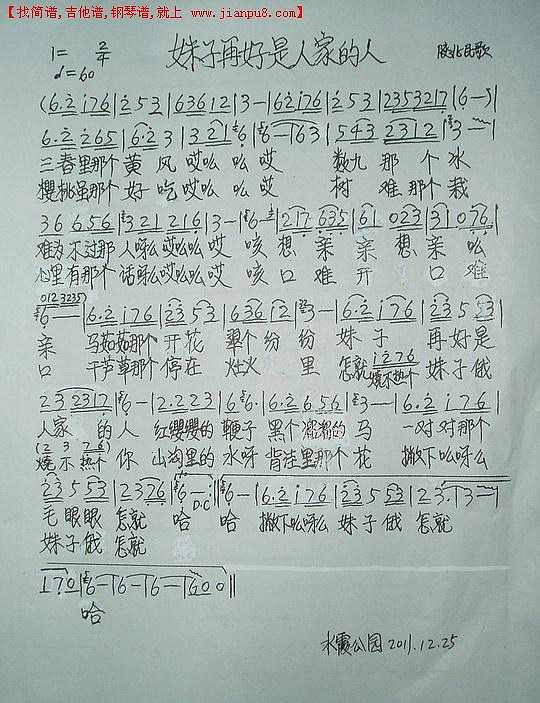 【找简谱,吉他谱,钢琴谱,就上 www.jianpu8.com】
妹子再好是人家的人
1= 2/4
♩=60
陕北民歌
(6·2 176 | 2 53 | 63612 | 3 — | 62 176 | 2 53 | 2353217 | 6 —) |
6·2 265 | 6·2 3 | 3 221 6 | 6 — 163 | 543 2312 | 3 —
三春里那个 黄 风 哎么 么 哎 数九 那 个 冰
樱桃虽那个 好 吃 哎么 么 哎 树 难 那个 栽
36 656 | 3 21 216 | 3 — | 6 — | 217 635 | 61 023 | 31 076 |
难为 不过那 人呀么哎么么 哎 咳 想 亲 亲 想 亲 么
心里有那个 话呀么哎么么 哎 咳 口 难 开 口 难
012 3235
6 — | 6·2 176 | 23 53 | 636 12 | 3 — | 6·2 176 | 23 5 53 |
亲 马茹茹那个 开花 翠个 纷 纷 妹 子 再 好是
口 干芦草那个 停在 灶火 里 怎就 烧不热个 妹子俄
1 2 7 6
23 2317 | 6 — | 2·2 23 | 6 6· | 6·2 656 | 3 — | 6·2 176 |
人家 的 人 红缨缨的 鞭子 黑个 溜溜的 马 一对对那个
(2 3 7 6)
烧 不 热个 你 山沟里的 水呀 背洼里那个 花 撇下么呀么
23 5 53 | 23 76 | 6 — :| 6 — | 6·2 176 | 23 5 53 | 23· 13 —
D.C
毛 眼眼 怎就 哈 哈 撇下么呀么 妹 子俄 怎就
妹子俄 怎就
170 | 6 — | 6 — | 6 — | 600 ||
哈
水霞公园 2011.12.25